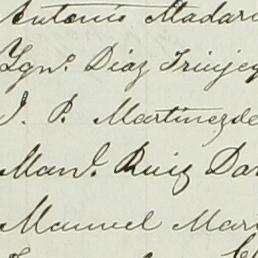 Antonio Madari
Ygn.º Diaz
J. P. Martinezde
Man.l Ruiz Da
Manuel Mari